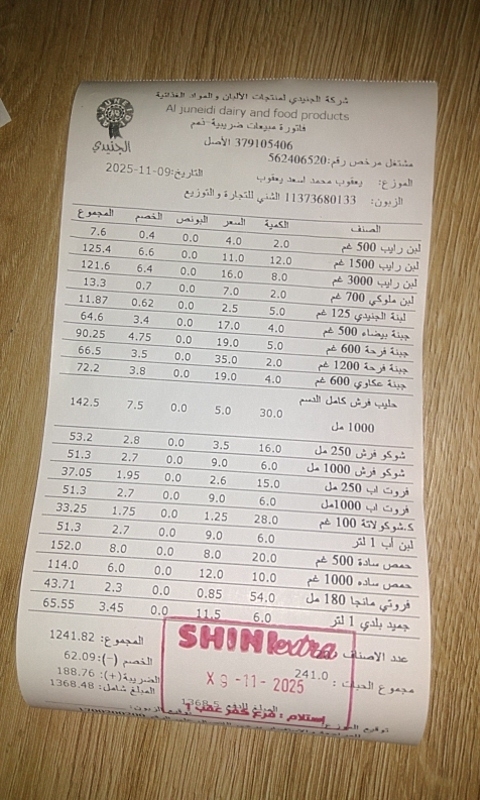 شركة الجنيدي لمنتجات الألبان والمواد الغذائية
Al juneidi dairy and food products
فاتورة مبيعات ضريبية-ذمم
379105406 الأصل
مشتغل مرخص رقم:562406520
الجنيدي
الموزع: يعقوب محمد اسعد يعقوب التاريخ:2025-11-09
الزبون: 11373680133 الشني للتجارة والتوزيع
الصنف الكمية السعر البونص الخصم المجموع
لبن رايب 500 غم 2.0 4.0 0.0 0.4 7.6
لبن رايب 1500 غم 12.0 11.0 0.0 6.6 125.4
لبن رايب 3000 غم 8.0 16.0 0.0 6.4 121.6
لبن ملوكي 700 غم 2.0 7.0 0.0 0.7 13.3
لبنة الجنيدي 125 غم 5.0 2.5 0.0 0.62 11.87
جبنة بيضاء 500 غم 4.0 17.0 0.0 3.4 64.6
جبنة فرحة 600 غم 5.0 19.0 0.0 4.75 90.25
جبنة فرحة 1200 غم 2.0 35.0 0.0 3.5 66.5
جبنة عكاوي 600 غم 4.0 19.0 0.0 3.8 72.2
حليب فرش كامل الدسم
1000 مل 30.0 5.0 0.0 7.5 142.5
شوكو فرش 250 مل 16.0 3.5 0.0 2.8 53.2
شوكو فرش 1000 مل 6.0 9.0 0.0 2.7 51.3
فروت اب 250 مل 15.0 2.6 0.0 1.95 37.05
فروت اب 1000مل 6.0 9.0 0.0 2.7 51.3
ك.شوكولاتة 100 غم 28.0 1.25 0.0 1.75 33.25
لبن أب 1 لتر 6.0 9.0 0.0 2.7 51.3
حمص سادة 500 غم 20.0 8.0 0.0 8.0 152.0
حمص ساده 1000 غم 10.0 12.0 0.0 6.0 114.0
فروتي مانجا 180 مل 54.0 0.85 0.0 2.3 43.71
جميد بلدي 1 لتر 6.0 11.5 0.0 3.45 65.55
عدد الاصناف
المجموع: 1241.82
مجموع الحبات : 241.0
الخصم (-):62.09
الضريبة(+): 188.76
المبلغ شامل: 1368.48
SHINI extra
X 9 -11- 2025
استلام : فرع كفر عقب 1